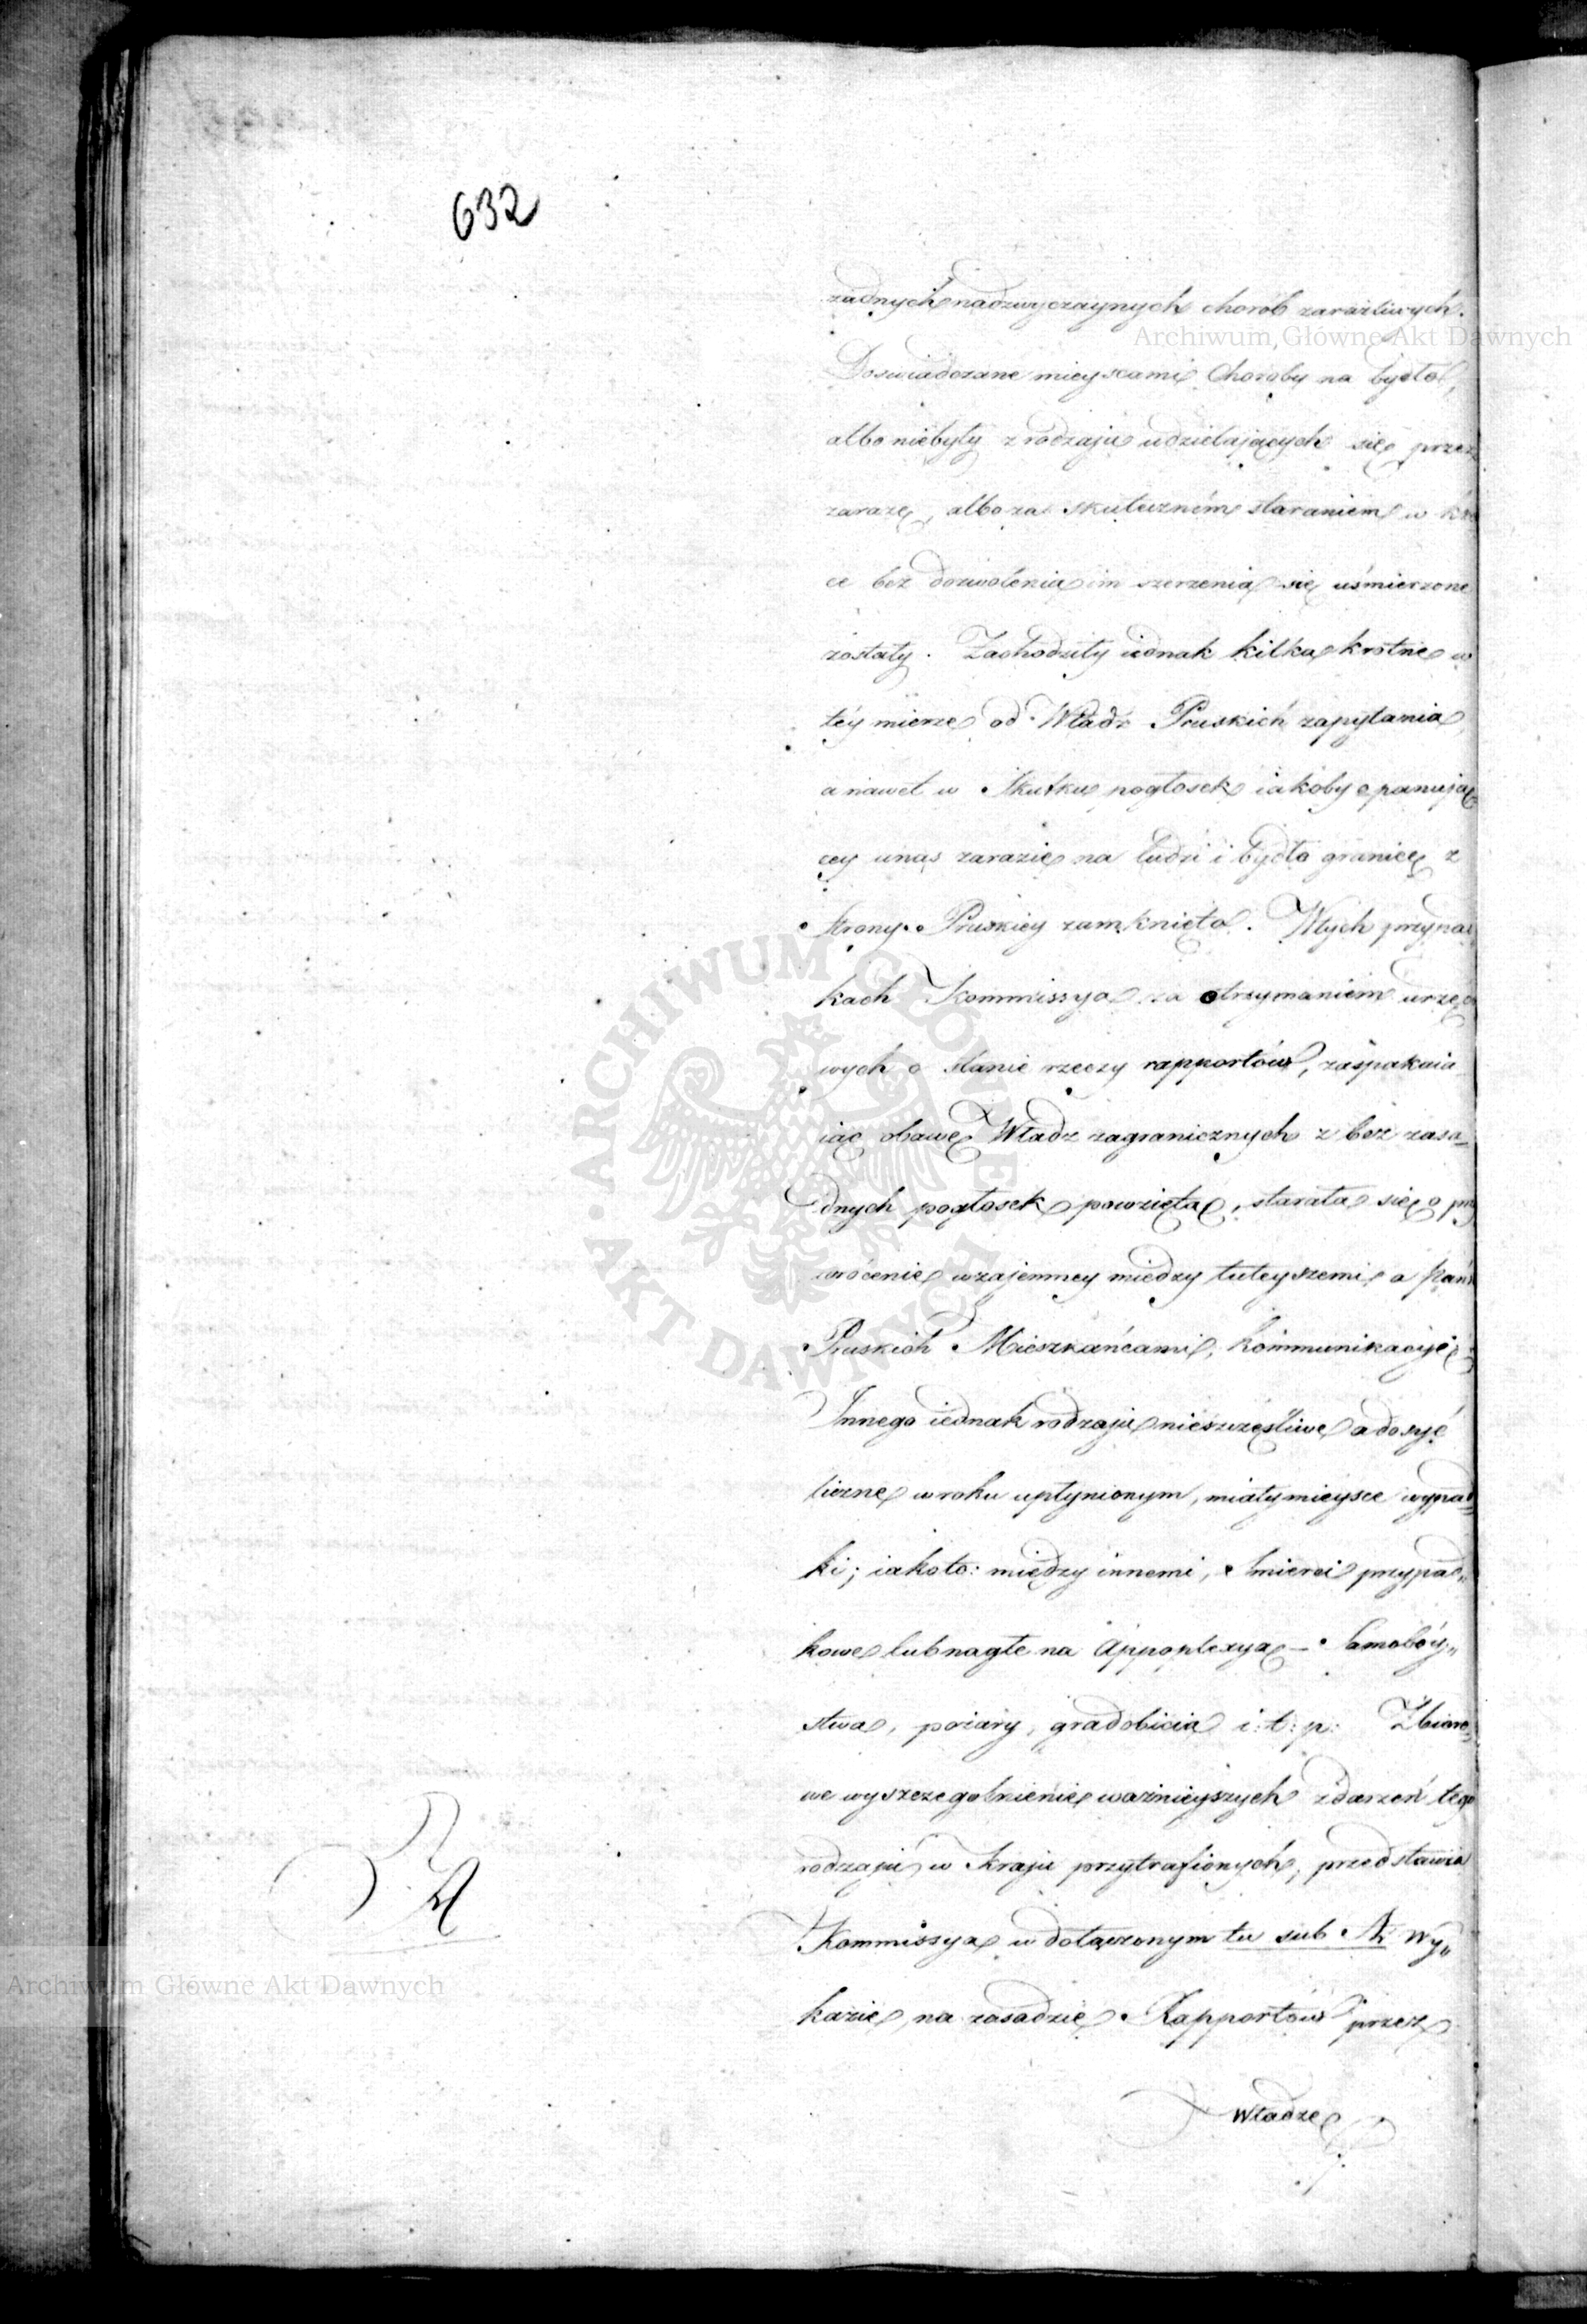 632
żadnych nadzwyczaynych chorób zaraźliwych.
Doswiadczane mieyscami Choroby na bydło,
albo niebyły z rodzaju udzielających się przez
zarazę, albo za skutecznóm staraniem w kró
ce bez dozwolenia im szerzenia się uśmierzone
zostały. Zachodziły iednak kilka krotnie w
téy mierze od Władz Pruskich zapytania
a nawet w skutku pogłosek iakoby o panując
cey unas zarazie na ludzi i bydło granicę z
strony Pruskiey zamknięto. Wtych przypad
kach Kommissya za otrzymaniem urzędo
wych o stanie rzeczy rapportów, zaspakaia
iąc obawę Władz zagranicznych z bez zasa_
dnych pogłosek powziętą, starała się o przy
wrócenie wzajemney między tuteyszemi a Pań
Pruskich Mieszkańcami, kommunikacyi
Innego iednak rodzaju nieszczęśliwe a dosyć
liczne w roku upłynionym, miały mieysce wypad=
ki; iakoto: między innemi, śmierci przypad„
kowe lub nagłe na Appoplexyą – Samobóy„
stwa, pożary, gradobicia i: t: p: Zbioro„
we wyszczegolnienie ważnieyszych zdarzeń tego
rodzaju w Kraju przytrafionych, przedstawia
Kommissya w dołączonym tu sub A. Wy„
kazie, na zasadzie Rapportów przez
Władze
A
Archiwum Główne Akt Dawnych
Archiwum Główne Akt Dawnych
ARCHIWUM GŁÓWNE · AKT DAWNYCH ·